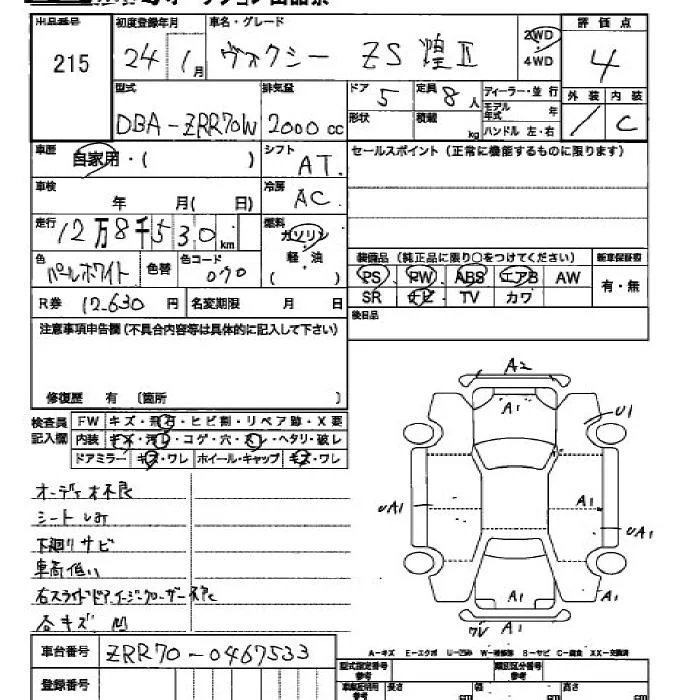 出品番号 初度登録年月 車名・グレード 2WD 評価点
215 24 1月 ヴォクシー ZS 煌Ⅱ 4WD 4
型式 排気量 ドア 5 定員 8人 ディーラー・並行 外装 内装
DBA-ZRR70W 2000cc 形状 積載 kg モデル年式 年 ハンドル 左・右 / C
車歴 自家用・( ) シフト AT. セールスポイント(正常に機能するものに限ります)
車検 年 月( 日) 冷房 AC
走行 12万8千530km 燃料 ガソリン
色 パールホワイト 色替 色コード 070 軽・油 ( ) 装備品(純正品に限り○をつけてください) 新車保証書
PS PW ABS エアB AW 有・無
R券 12,630円 名変期限 月 日 SR ナビ TV カワ
注意事項申告欄(不具合内容等は具体的に記入して下さい) 後日品
修復歴 有 〔箇所 〕
A2
A1
U1
検査員記入欄 FW キズ・飛石・ヒビ割・リペア跡・X要
内装 キズ・汚レ・コゲ・穴・スレ・ヘタリ・破レ
ドアミラー キズ・ワレ ホイール・キャップ キズ・ワレ
オーディオ不良
シートしみ
下廻りサビ
車高低い
右スライドドアイージークローザー不良
各キズ 凹
UA1 A1 UA1
A1 A1 A1
ワレ A1
A-キズ E-エクボ U-凹み W-補修跡 S-サビ C-腐食 XX-交換済
車台番号 ZRR70-0467533 型式指定番号 参考 類別区分番号 参考
登録番号 長さ cm 幅 cm 高さ cm